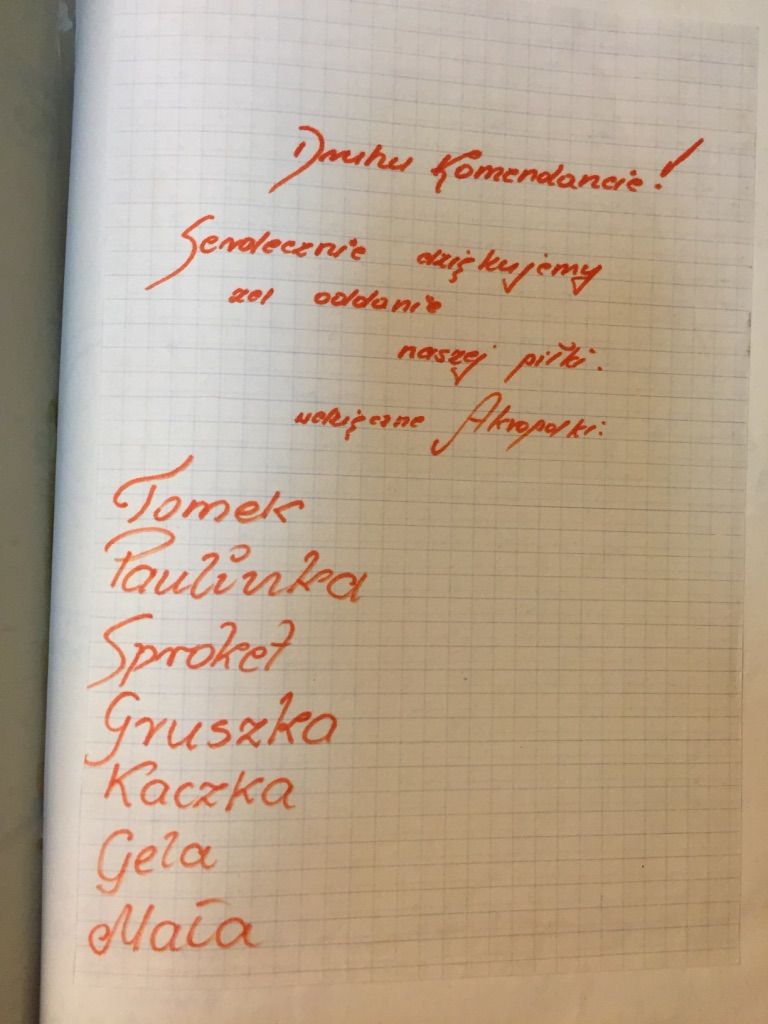 Druhu Komendancie!
Serdecznie dziękujemy
za oddanie
naszej piłki.
wdzięczne Akropolki:
Tomek
Paulinka
Sproket
Gruszka
Kaczka
Gela
Mała